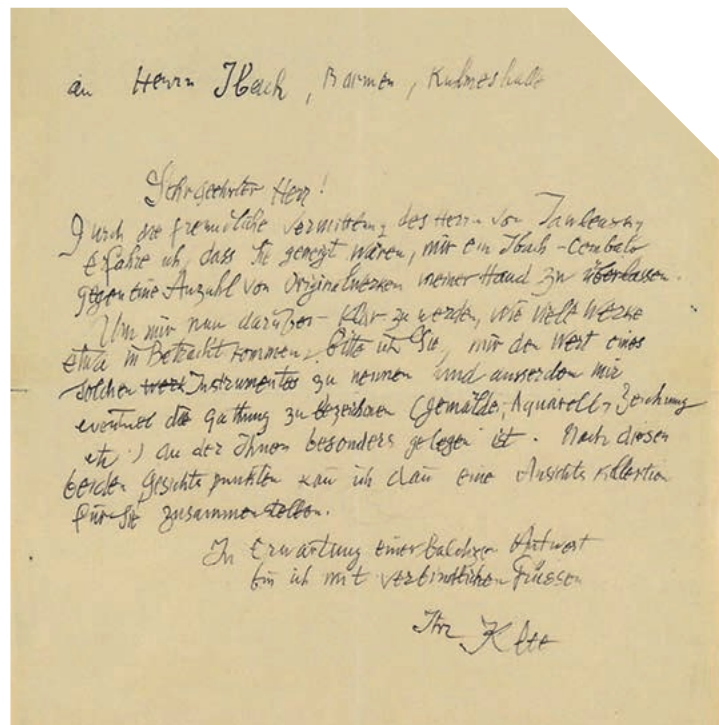 an Herrn Ibach, Barmen, Ruhmeshalle
Sehr geehrter Herr!
Durch die freundliche Vermittlung des Herrn von Jawlensky
erfahre ich, dass Sie geneigt wären, mir ein Ibach-Cembalo
gegen eine Anzahl von Originalwerken meiner Hand zu überlassen.
Um mir nun darüber klar zu werden, wie viele Werke
etwa in Betracht kommen, bitte ich Sie, mir den Wert eines
solchen Instrumentes zu nennen und ausserdem mir
eventuel die Gattung zu bezeichnen (Gemälde, Aquarell, Zeichnung
etc.) an der Ihnen besonders gelegen ist. Nach diesen
beiden Gesichtspunkten kan ich dan eine Ansichtskollection
für Sie zusammenstellen.
In Erwartung einer baldigen Antwort
bin ich mit verbindlichen Grüssen
Ihr Klee